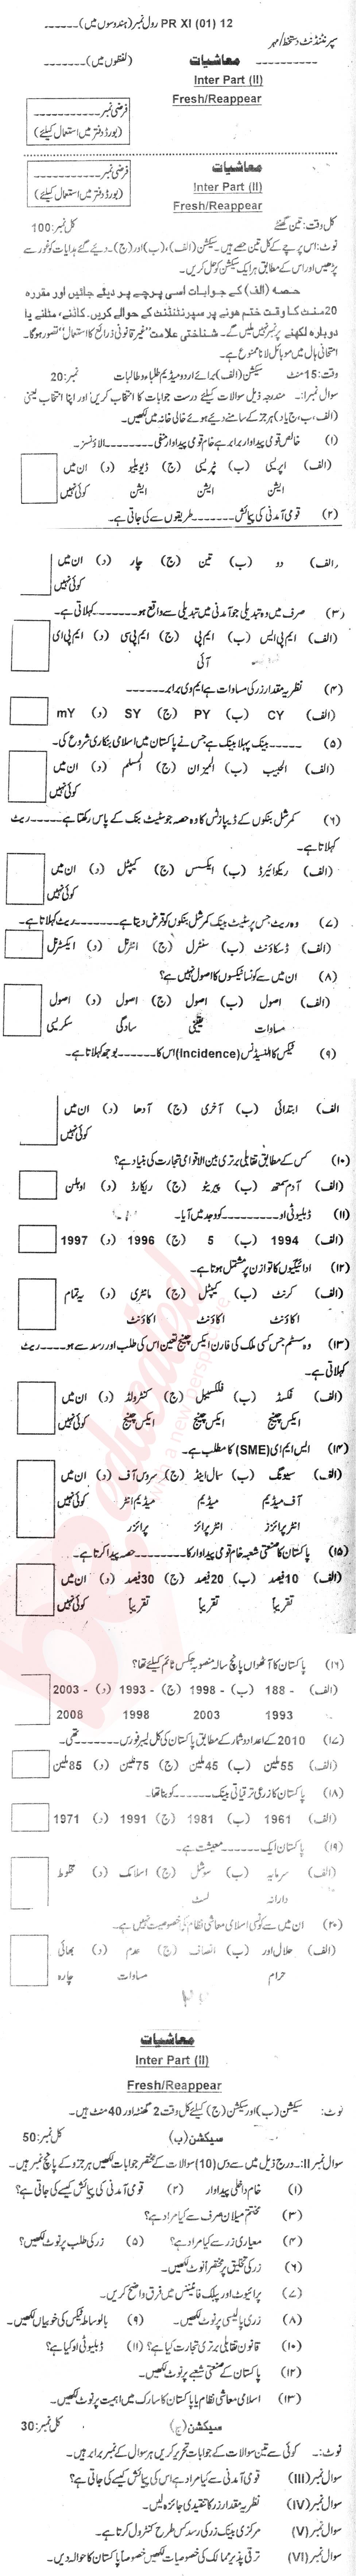 PR XI (01) 12 رول نمبر (ہندوسوں میں)------
سپرنٹنڈنٹ دستخط/مہر
معاشیات (لفظوں میں)-------
Inter Part (II)
Fresh/Reappear
فرضی نمبر
(بورڈ دفتر میں استعمال کیلئے)
معاشیات
Inter Part (II)
Fresh/Reappear
فرضی نمبر
(بورڈ دفتر میں استعمال کیلئے)
کل وقت: تین گھنٹے کل نمبر: 100
نوٹ: اس پرچے کے کل تین حصے ہیں۔ سیکشن (الف)، (ب) اور (ج)۔ دیئے گئے ہدایات کو غور سے
پڑھیں اور اس کے مطابق ہر ایک سیکشن کو حل کریں۔
حصہ (الف) کے جوابات اسی پرچے پر دیئے جائیں اور مقررہ
20 منٹ کا وقت ختم ہونے پر سپرنٹنڈنٹ کے حوالے کریں۔ کاٹنے، مٹانے یا
دوبارہ لکھنے پر نمبر نہیں ملیں گے۔ شناختی علامت "غیر قانونی ذرائع کا استعمال" تصور ہوگا۔
امتحانی ہال میں موبائل لانا ممنوع ہے۔
وقت: 15 منٹ سیکشن (الف) برائے اردو میڈیم طلباء و طالبات نمبر: 20
سوال نمبر I:۔ مندرجہ ذیل سوالات کیلئے درست جوابات کا انتخاب کریں اور اپنا انتخاب یعنی
(الف، ب، ج یا د) ہر جز کے سامنے دیئے ہوئے خالی خانہ میں لکھیں۔
(۱) خالص قومی پیداوار برابر ہے خام قومی پیداوار منفی--------الاؤنسز۔
(الف) اپریسی ایشن (ب) ڈپریسی ایشن (ج) ڈیویلیو ایشن (د) ان میں کوئی نہیں
(۲) قومی آمدنی کی پیمائش-------طریقوں سے کی جاتی ہے۔
(الف) دو (ب) تین (ج) چار (د) ان میں کوئی نہیں
(۳) صرف میں وہ تبدیلی جو آمدنی میں تبدیلی سے واقع ہو-------کہلاتی ہے۔
(الف) ایم پی ایس (ب) ایم پی آئی (ج) ایم پی سی (د) ایم پی ای
(۴) نظریہ مقدار زر کی مساوات ہے ایم وی برابر------
(الف) CY (ب) PY (ج) SY (د) mY
(۵) -----بینک پہلا بینک ہے جس نے پاکستان میں اسلامی بنکاری شروع کی۔
(الف) الحبیب (ب) المیزان (ج) المسلم (د) ان میں کوئی نہیں
(۶) کمرشل بنکوں کے ڈیپازٹس کا وہ حصہ جو سٹیٹ بنک کے پاس رکھتا ہے-----ریٹ
کہلاتا ہے۔
(الف) ریکوائیرڈ (ب) ایکسس (ج) کیپٹل (د) ان میں کوئی نہیں
(۷) وہ ریٹ جس پر سٹیٹ بینک کمرشل بنکوں کو قرض دیتا ہے-------ریٹ کہلاتا ہے۔
(الف) ڈسکاؤنٹ (ب) سنٹرل (ج) انٹرنل (د) ایکسٹرنل
(۸) ان میں سے کونسا ٹیکسوں کا اصول نہیں ہے؟
(الف) اصول مساوات (ب) اصول یقینی (ج) اصول سادگی (د) اصول سکریسی
(۹) ٹیکس کا انسیڈنس (Incidence) اس کا------بوجھ کہلاتا ہے۔
الف) ابتدائی (ب) آخری (ج) آدھا (د) ان میں کوئی نہیں
(۱۰) کس کے مطابق تقابلی برتری بین الاقوامی تجارت کی بنیاد ہے؟
(الف) آدم سمتھ (ب) پیریٹو (ج) ریکارڈو (د) اوہلن
(۱۱) ڈبلیو ٹی او-------کو وجود میں آیا۔
(الف) 1994 (ب) 5 (ج) 1996 (د) 1997
(۱۲) ادائیگیوں کا توازن پر مشتمل ہوتا ہے۔
(الف) کرنٹ اکاؤنٹ (ب) کیپٹل اکاؤنٹ (ج) مانٹری اکاؤنٹ (د) یہ تمام
(۱۳) وہ سسٹم جس کسی ملک کی فارن ایکس چینج تعین اس کی طلب اور رسد سے ہو----ریٹ
کہلاتی ہے۔
(الف) فکسڈ ایکس چینج (ب) فلکسیبل ایکس چینج (ج) کنٹرولڈ ایکس چینج (د) ان میں کوئی نہیں
(۱۴) ایس ایم ای (SME) کا مطلب ہے۔
(الف) سیونگ آف میڈیم انٹر پرائزز (ب) سمال اینڈ میڈیم انٹر پرائزز (ج) سروس آف میڈیم انٹر پرائزز (د) ان میں کوئی نہیں
(۱۵) پاکستان کا صنعتی شعبہ خام قومی پیداوار کا--------حصہ پیدا کرتا ہے۔
(الف) 10 فیصد تقریباً (ب) 20 فیصد تقریباً (ج) 30 فیصد تقریباً (د) ان میں کوئی نہیں
(۱۶) پاکستان کا آٹھواں پانچ سالہ منصوبہ جکس ٹائم کیلئے تھا؟
(الف) 188-1993 (ب) 1998-2003 (ج) 1993-1998 (د) 2003-2008
(۱۷) 2010 کے اعداد و شمار کے مطابق پاکستان کی کل لیبر فورس-------تھی۔
(الف) 55 ملین (ب) 45 ملین (ج) 75 ملین (د) 85 ملین
(۱۸) پاکستان کا زرعی ترقیاتی بینک-----کو بنا تھا۔
(الف) 1961 (ب) 1981 (ج) 1991 (د) 1971
(۱۹) پاکستان ایک--------معیشت ہے۔
(الف) سرمایہ دارانہ (ب) سوشل لسٹ (ج) اسلامک (د) مخلوط
(۲۰) ان میں سے کونسی اسلامی معاشی نظام کی خصوصیت نہیں ہے۔
(الف) حلال اور حرام (ب) انصاف (ج) عدم مساوات (د) بھائی چارہ
معاشیات
Inter Part (II)
Fresh/Reappear
نوٹ: سیکشن (ب) اور سیکشن (ج) کیلئے کل وقت 2 گھنٹہ اور 40 منٹ ہیں۔
سیکشن (ب) کل نمبر: 50
سوال نمبر II:۔ درج ذیل میں سے دس (10) سوالات کے مختصر جوابات لکھیں ہر جزو کے پانچ نمبر ہیں۔
(۱) خام داخلی پیداوار (۲) قومی آمدنی کی پیمائش کیسے کی جاتی ہے؟
(۳) مختتم میلان صرف سے کیا مراد ہے؟
(۴) معیاری زر سے کیا مراد ہے؟ (۵) زر کی طلب پر نوٹ لکھیں؟
(۶) زر کی تخلیق پر مختصراً نوٹ لکھیں۔
(۷) پرائیوٹ اور پبلک فائینس میں فرق واضح کریں۔
(۸) زری پالیسی پر نوٹ لکھیں۔ (۹) بالواسطہ ٹیکس کی خوبیاں لکھیں۔
(۱۰) قانون تقابلی برتری تجارت کیا ہے؟ (۱۱) ڈبلیو ٹی او کیا ہے؟
(۱۲) پاکستان کے صنعتی شعبے پر نوٹ لکھیں۔
(۱۳) اسلامی معاشی نظام یا پاکستان کا سارک میں اہمیت پر نوٹ لکھیں۔
سیکشن (ج) کل نمبر: 30
نوٹ:۔ کوئی سے تین سوالات کے جوابات تحریر کریں ہر سوال کے نمبر برابر ہیں۔
سوال نمبر (III) قومی آمدنی سے کیا مراد ہے اس کی پیمائش کیسے کی جاتی ہے؟
سوال نمبر (IV) نظریہ مقدار زر کا تنقیدی جائزہ لیں۔
سوال نمبر (V) مرکزی بینک زر کی رسد کس طرح کنٹرول کرتا ہے۔
سوال نمبر (VI) ترقی پذیر ممالک کی خصوصیات لکھیں خصوصاً پاکستان کا حوالہ دیں۔